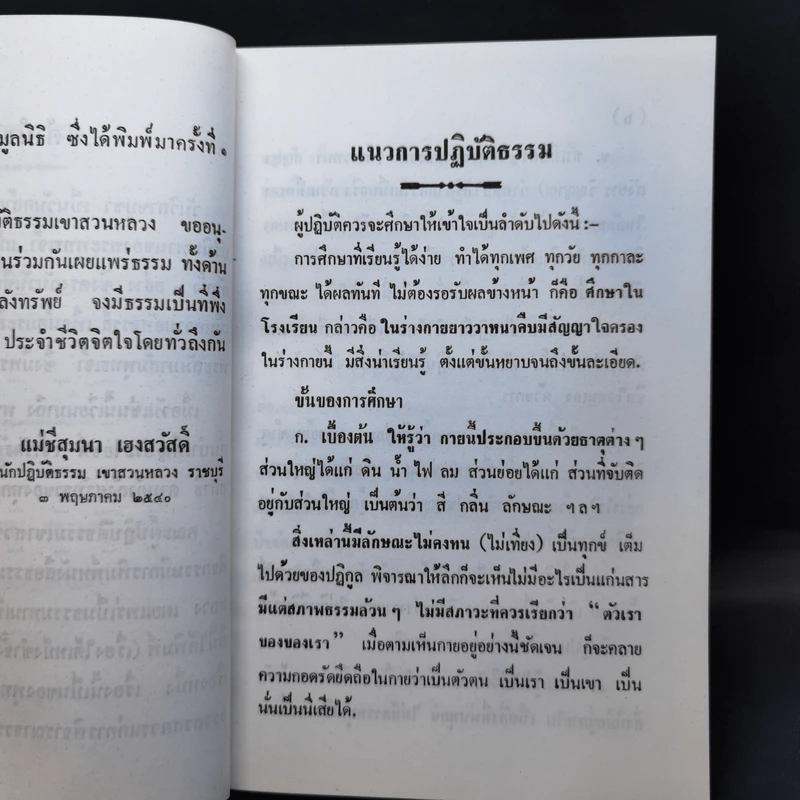 มูลนิธิ ซึ่งได้พิมพ์มาครั้งที่ ๑
ติธรรมเขาสวนหลวง ขออนุ-
นร่วมกันเผยแพร่ธรรม ทั้งด้าน
ลังทรัพย์ จงมีธรรมเป็นที่พึ่ง
ประจำชีวิตจิตใจโดยทั่วถึงกัน
แม่ชีสุมนา เฮงสวัสดิ์
นักปฏิบัติธรรม เขาสวนหลวง ราชบุรี
๓ พฤษภาคม ๒๕๔๐
แนวการปฏิบัติธรรม
ผู้ปฏิบัติควรจะศึกษาให้เข้าใจเป็นลำดับไปดังนี้ :–
การศึกษาที่เรียนรู้ได้ง่าย ทำได้ทุกเพศ ทุกวัย ทุกกาละ
ทุกขณะ ได้ผลทันที ไม่ต้องรอรับผลข้างหน้า ก็คือ ศึกษาใน
โรงเรียน กล่าวคือ ในร่างกายยาววาหนาคืบมีสัญญาใจครอง
ในร่างกายนี้ มีสิ่งน่าเรียนรู้ ตั้งแต่ชั้นหยาบจนถึงขั้นละเอียด.
ขั้นของการศึกษา
ก. เบื้องต้น ให้รู้ว่า กายนี้ประกอบขึ้นด้วยธาตุต่าง ๆ
ส่วนใหญ่ได้แก่ ดิน น้ำ ไฟ ลม ส่วนย่อยได้แก่ ส่วนที่จับติด
อยู่กับส่วนใหญ่ เป็นต้นว่า สี กลิ่น ลักษณะ ฯลฯ
สิ่งเหล่านี้มีลักษณะไม่คงทน (ไม่เที่ยง) เป็นทุกข์ เต็ม
ไปด้วยของปฏิกูล พิจารณาให้ลึกก็จะเห็นไม่มีอะไรเป็นแก่นสาร
มีแต่สภาพธรรมล้วน ๆ ไม่มีสภาวะที่ควรเรียกว่า “ตัวเรา
ของของเรา” เมื่อตามเห็นกายอยู่อย่างนี้ชัดเจน ก็จะคลาย
ความกอดรัดยึดถือในกายว่าเป็นตัวตน เป็นเรา เป็นเขา เป็น
นั่นเป็นนี่เสียได้.